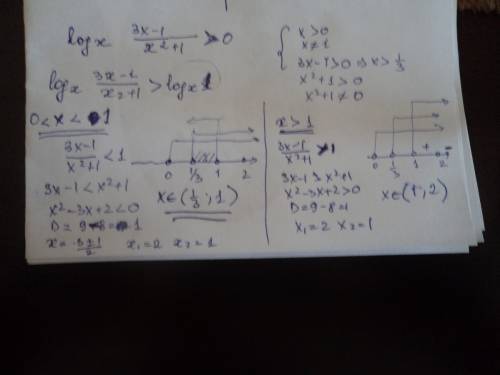 log x (3x-1)/(x²+1) > 0
{ x>0
x≠1
3x-1>0 ⇒ x>1/3
x²+1>0
x²+1≠0
log x (3x-1)/(x2+1) > log x 1
0<x<1
(3x-1)/(x²+1) < 1
3x-1<x²+1
x²-3x+2<0
D=9-8=1
x=(3±1)/2 x₁=2 x₂=1
0 1/3 1 2
x∈(1/3;1)
x>1
(3x-1)/(x²+1) >1
3x-1>x²+1
x²-3x+2>0
D=9-8=1
x₁=2 x₂=1
+ -
0 1/3 1 2
x∈(1;2)